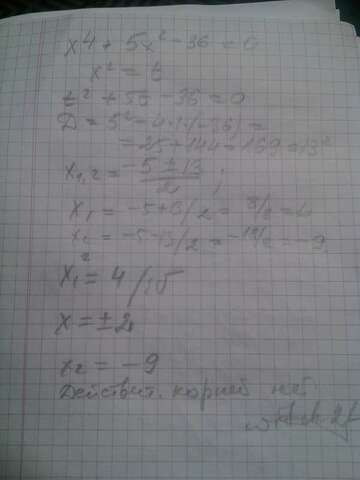 x4 + 5x² - 36 = 0
x² = t
t² + 5t - 36 = 0
D = 5² - 4·1·(-36) =
= 25 + 144 = 169 = 13²
x1,2 = -5 ± 13 / 2 ;
x1 = -5+13/2 = 8/2 = 4
x2 = -5-13/2 = -18/2 = -9
x1² = 4
x = ±2
x2 = -9
Действит. корней нет